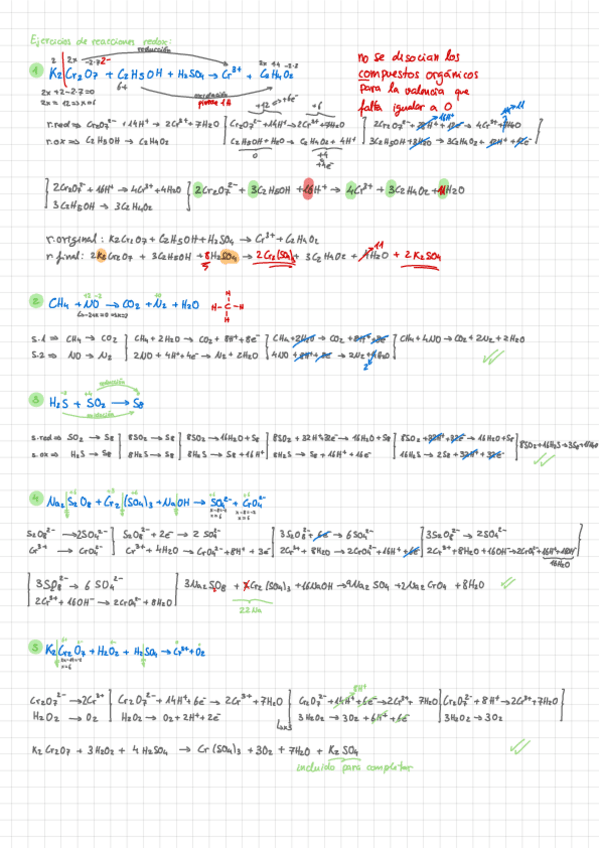 Ejercicios de reacciones redox:
reducción
1 K2Cr2O7 + C2H5OH + H2SO4 → Cr3+ + C2H4O2
2x + 2 - 2·7 = 0
2x = 12 => x = 6
oxidación
no se disocian los
compuestos orgánicos
para la valencia que
falta igualar a 0
s.red => Cr2O7 2- + 14H+ → 2Cr3+ + 7H2O
s.ox => C2H5OH → C2H4O2
Cr2O7 2- + 14H+ → 2Cr3+ + 7H2O
C2H5OH + H2O → C2H4O2 + 4H+
2Cr2O7 2- + 16H+ → 4Cr3+ + 4H2O
3C2H5OH → 3C2H4O2
2Cr2O7 2- + 3C2H5OH + 16H+ → 4Cr3+ + 3C2H4O2 + 11H2O
r.original: K2Cr2O7 + C2H5OH + H2SO4 → Cr3+ + C2H4O2
r.final: 2K2Cr2O7 + 3C2H5OH + 8H2SO4 → 2Cr2(SO4)3 + 3C2H4O2 + 11H2O + 2K2SO4
2 CH4 + NO → CO2 + N2 + H2O
S.1 => CH4 → CO2
CH4 + 2H2O → CO2 + 8H+ + 8e-
CH4 + 2H2O → CO2 + 8H+ + 8e-
CH4 + 4NO → CO2 + 2N2 + 2H2O
S.2 => NO → N2
2NO + 4H+ + 4e- → N2 + 2H2O
reducción
3 H2S + SO2 → S8
oxidación
s.red => SO2 → S8
8SO2 → S8
8SO2 → 16H2O + S8
8SO2 + 32H+ + 32e- → 16H2O + S8
8SO2 + 32H+ + 32e- → 16H2O + S8
8SO2 + 16H2S → 3S8 + 16H2O
s.ox => H2S → S8
8H2S → S8
8H2S → S8 + 16H+
8H2S → S8 + 16H+ + 16e-
16H2S → 2S8 + 32H+ + 32e-
4 Na2S2O8 + Cr2(SO4)3 + NaOH → SO4 2- + CrO4 2-
S2O8 2- → 2SO4 2-
S2O8 2- + 2e- → 2SO4 2-
3S2O8 2- + 6e- → 6SO4 2-
Cr3+ → CrO4 2-
Cr3+ + 4H2O → CrO4 2- + 8H+ + 3e-
2Cr3+ + 8H2O → 2CrO4 2- + 16H+ + 6e-
2Cr3+ + 8H2O + 16OH- → 2CrO4 2- + 16H+ + 16OH-
16H2O
2Cr3+ + 16OH- → 2CrO4 2- + 8H2O
3Na2S2O8 + Cr2(SO4)3 + 16NaOH → 9Na2SO4 + 2Na2CrO4 + 8H2O
22Na
5 K2Cr2O7 + H2O2 + H2SO4 → Cr3+ + O2
Cr2O7 2- → 2Cr3+
Cr2O7 2- + 14H+ + 6e- → 2Cr3+ + 7H2O
8H+
Cr2O7 2- + 14H+ + 6e- → 2Cr3+ + 7H2O
Cr2O7 2- + 8H+ → 2Cr3+ + 7H2O
H2O2 → O2
H2O2 → O2 + 2H+ + 2e-
3H2O2 → 3O2 + 6H+ + 6e-
3H2O2 → 3O2
K2Cr2O7 + 3H2O2 + 4H2SO4 → Cr(SO4)3 + 3O2 + 7H2O + K2SO4
incluido para completar